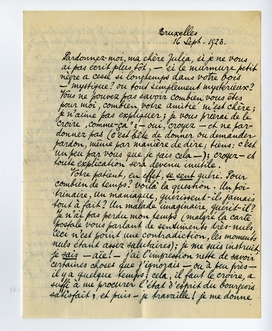 Bruxelles
16 Sept. 1923.
Pardonnez-moi, ma chère Julia, si je ne vous
ai pas écrit plus tôt, — si le murmure petit
nègre a cessé si longtemps dans votre bois
— mystique! ou tout simplement mystérieux?
Vous ne pouvez pas savoir combien vous êtes
pour moi, combien votre amitié m'est chère;
je n'aime pas expliquer; je vous prierai de le
croire, comme ça! — oui, croyez — et ne par-
donnez pas (c'est bête de donner ou demander
pardon, même par manière de dire; tiens: c'est
un peu par vous que je sais cela —); croyez — et
toute explication sera devenue inutile.
Votre patient, en effet, se sent guéri. Pour
combien de temps? voilà la question. Un poi-
trinaire, un maniaque, guérissent-ils jamais
tout à fait? Un malade imaginaire, guérit-il?
Je n'ai pas perdu mon temps (malgré la carte
postale vous parlant de sentiments très nuls
ceci n'est point une contradiction, les moments
nuls étant assez salutaires); je me suis instruit,
je sais — aïe! — j'ai l'impression nette de savoir
certaines choses que j'ignorais — ou à peu près —
il y a quelque temps; cela, il faut le croire, a
suffi à me procurer l'état d'esprit du bourgeois
satisfait, et puis — je travaille! je me donne